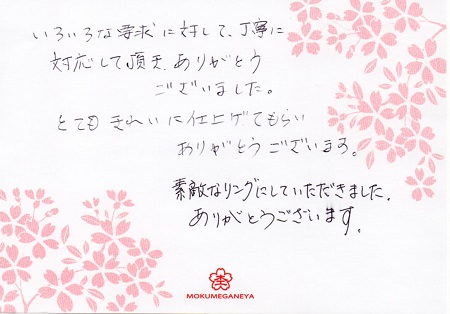 いろいろな要求に対して、丁寧に
対応して頂き、ありがとう
ございました。
とても きれいに仕上げてもらい
ありがとうございます。
素敵なリングにしていただきました。
ありがとうございます。
杢
MOKUMEGANEYA